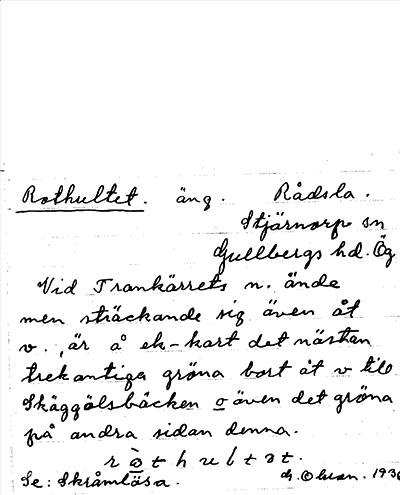 Rothultet. äng. Rådsla.
Stjärnorp sn
Gullbergs hd. Ög
Vid Trankärrets n. ände
men sträckande sig även åt
v., är å ek-kart det nästan
trekantiga gröna bort åt v till
Skäggölsbäcken o även det gröna
på andra sidan denna.
ròthultət.
Se: Skråmlösa. G. Olson. 1936